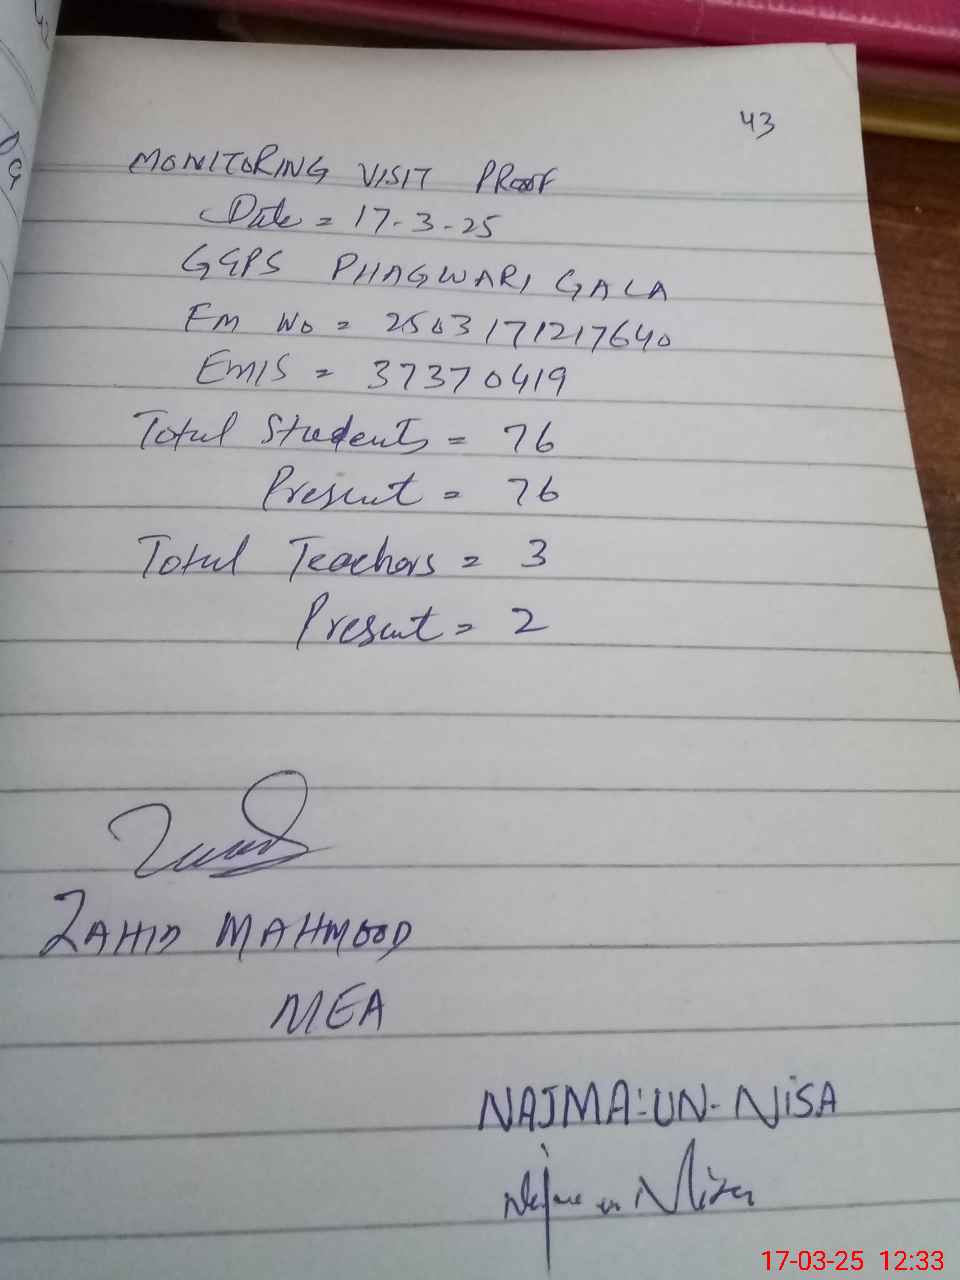 43
MONITORING VISIT PROOF
Date = 17-3-25
GGPS PHAGWARI GALA
FM No = 2503171217640
EMIS = 37370419
Total Students = 76
Present = 76
Total Teachers = 3
Present = 2
ZAHID MAHMOOD
MEA
NAJMA-UN-NISA
17-03-25 12:33